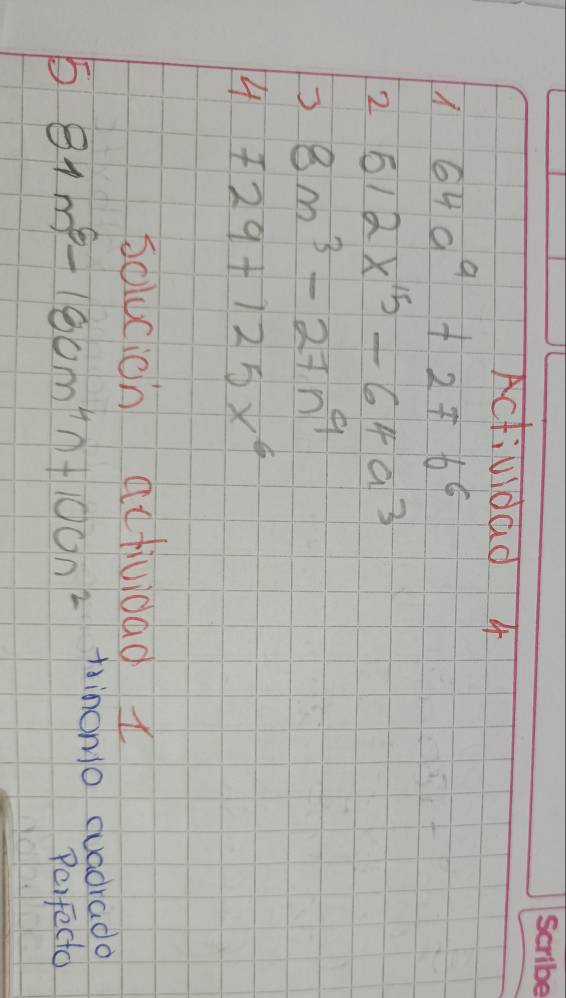 Scribe
Actividad 4
1 64a⁹ + 27b⁶
2 512x¹⁵ - 64a³
3 8m³ - 27n⁹
4 729 + 125x⁶
Solución actividad 1
5 81m⁸ - 180m⁴n + 100n² trinomio cuadrado
Perfecto